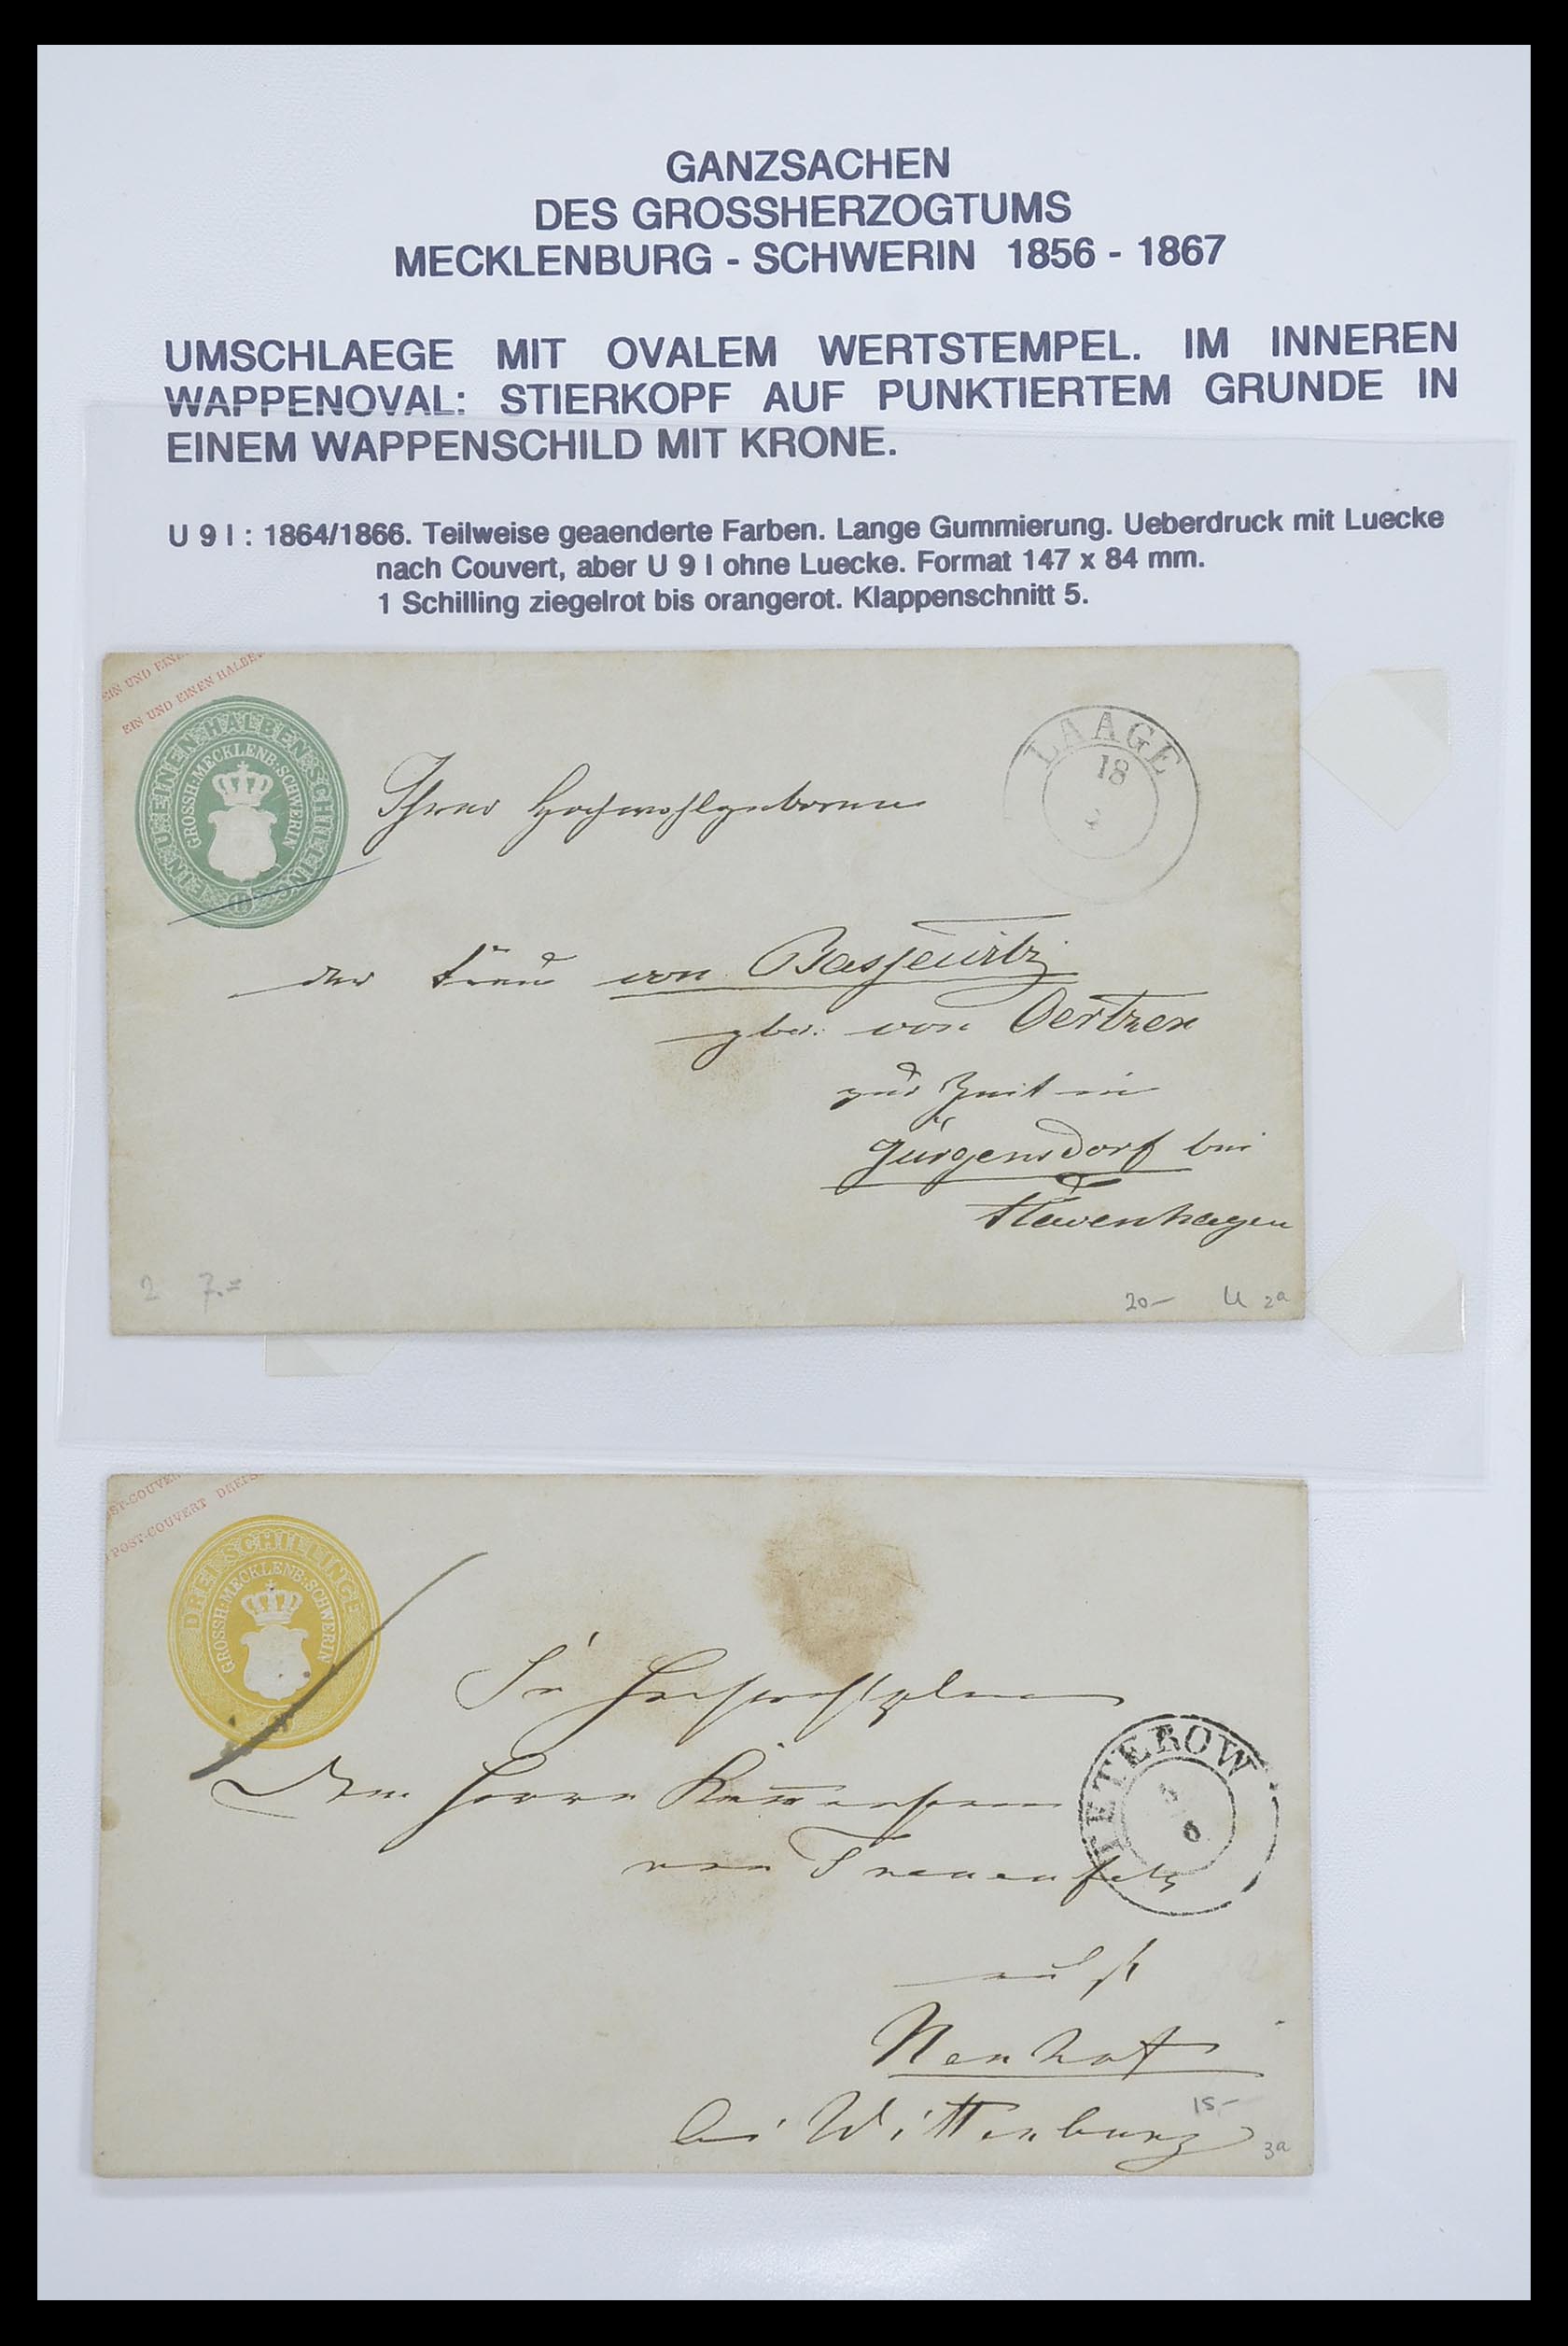 GANZSACHEN
DES GROSSHERZOGTUMS
MECKLENBURG - SCHWERIN 1856 - 1867
UMSCHLAEGE MIT OVALEM WERTSTEMPEL. IM INNEREN
WAPPENOVAL: STIERKOPF AUF PUNKTIERTEM GRUNDE IN
EINEM WAPPENSCHILD MIT KRONE.
U 9 I : 1864/1866. Teilweise geaenderte Farben. Lange Gummierung. Ueberdruck mit Luecke
nach Couvert, aber U 9 I ohne Luecke. Format 147 x 84 mm.
1 Schilling ziegelrot bis orangerot. Klappenschnitt 5.
EIN UND EINE
EIN UND EINEN HALBEN
EIN U. EINEN HALBEN SCHILLING
GROSSH. MECKLENB. SCHWERIN
LAAGE
18
Ihrer Hochwohlgeboren
der Frau von Bassewitz
geb. von Oertzen
zur Zeit in
Jürgensdorf bei
Stavenhagen
2 7.=
20- U 2a
ST-COUVE
POST-COUVERT DREI S
DREI SCHILLINGE
GROSSH. MECKLENB. SCHWERIN
Sr
Dem Herrn Kammerherrn
von
TETEROW
6
auf
Neuhof
bei Wittenburg
15-
3a